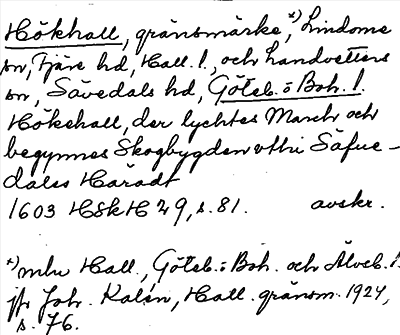 Hökhall, gränsmärke,ˣ⁾ Lindome
sn, Fjäre hd, Hall. l., och Landvetters
sn, Sävedals hd, Göteb. o Boh. l.
Hökehall, der lychtes March och
begynnes Skogbygden vthi Säfue-
dales Häradt
1603 HSkH 29, s. 81. avskr.
ˣ⁾ mlm Hall., Göteb. o Boh. och Älvsb. l.
jfr Joh. Kalén, Hall. gränsm. 1924,
s. 76.